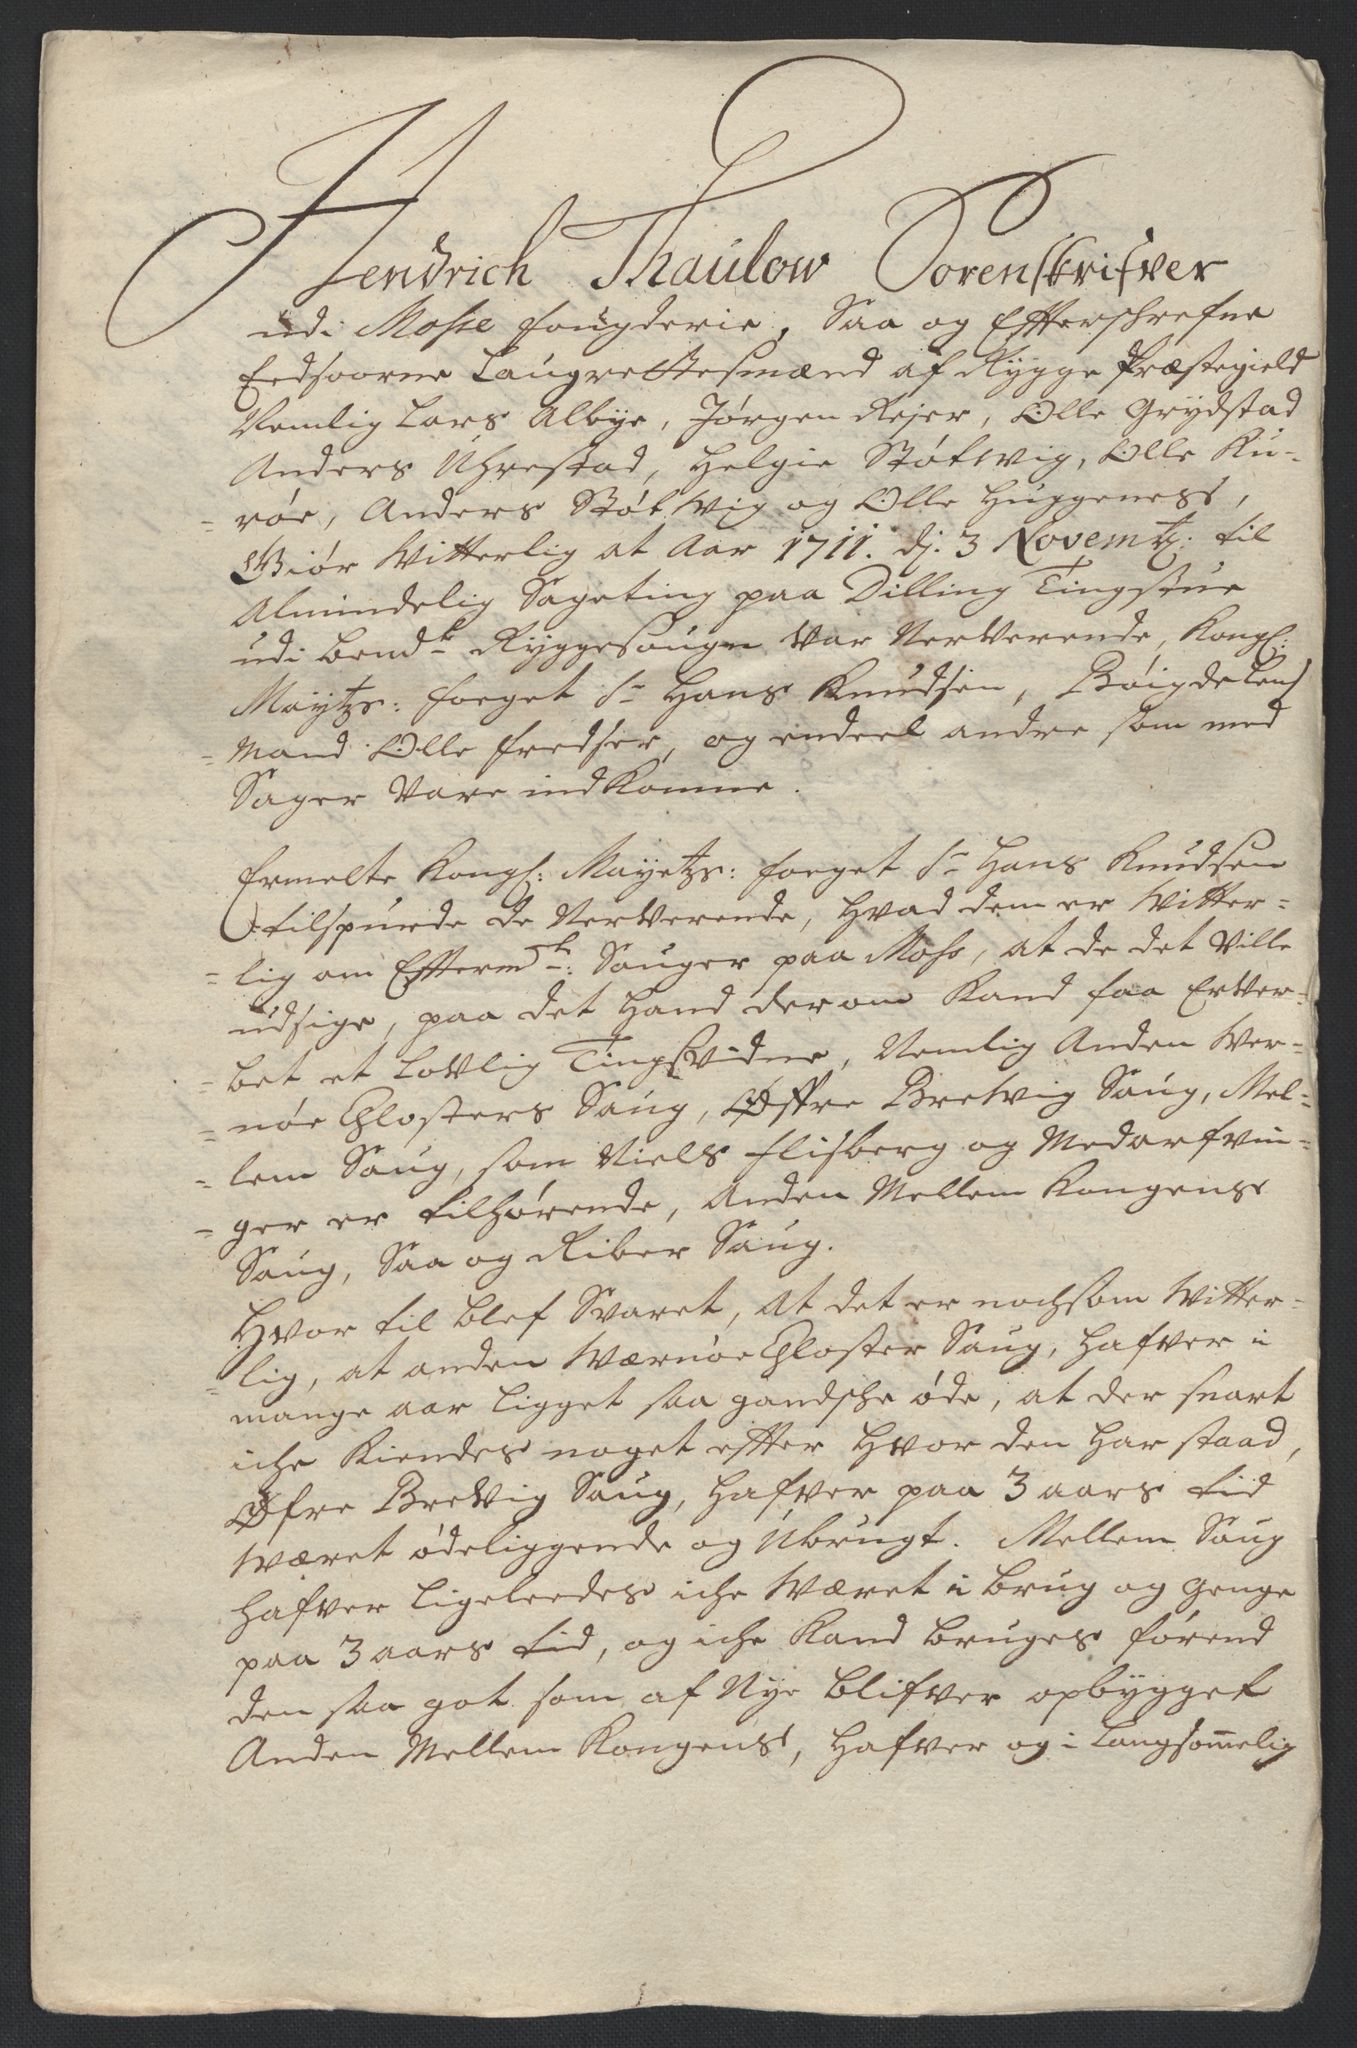 Hendrich Thaulow Sorenskrifver
udi Mosse fougderie, Saa og Effterschrefne
Eedsoorne Laugrettesmænd af Rygge Præstegield
Nemlig Lars Albye, Jørgen Rejer, Olle Grydstad
Anders Uhrestad, Helgie Støtwig, Olle Ku-
-røe, Anders Støtwig og Olle Huggeness,
Giør Witterlig at Aar 1711. dj. 3 Novembr: til
Almindelig Sageting paa Dilling Tingstue
udi bemdte Ryggesougn var Nerverende, Kongl:
Maytzs: foeget Sr Hans Knudsen, Bøigde Lens
-mand Olle fredser, og endeel andre som med
Sager vare indkomne.
Ermelte Kongl: Mayetzs: foeget Sr Hans Knudsen
tilspurde de Nerverende, hvad dem er Witter-
-lig om Effterm te: Sauger paa Moss, at de det ville
udsige, paa det hand derom kand faa Erver-
-bet et Lovlig Tingsvidne, Nemlig Anden Wer-
-nøe Closters Saug, Øffre Brevig Saug, Mel-
-lem Saug, som Niels flisberg og Medarfvin-
-ger er tilhørende, Anden Mellem Kongens
Saug, Saa og Riber Saug.
Hvor til blef Svaret, at det er nochsom Witter-
-lig, at anden Wærnøe Closter Saug, hafver i
mange aar Ligget saa gandsche øde, at der snart
iche kiendes noget effter hvor den har staad,
Øfre Brevig Saug, hafver paa 3 aars tid
Wæret ødeliggende og Ubrugt. Mellem Saug
hafver Ligeleedes iche Wæret i brug og genge
paa 3 aars tid, og iche kand bruges førend
den saa got som af Nye blifver opbygget
Anden Mellem Kongens, hafver og i Langsommelig